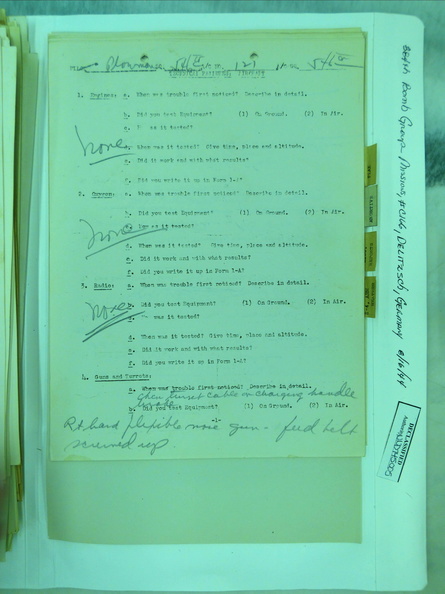 Plowman SQ. 546th A/P NO. 121 546th
TECHNICAL FAILURES REPORT
1. Engines: a. When was trouble first noticed? Describe in detail.
b. Did you test Equipment? (1) On Ground. (2) In Air.
as it tested?
None
d. When was it tested? Give time, place and altitude.
e. Did it work and with what results?
f. Did you write it up in Form 1-A?
2. a. When was trouble first noticed? Describe in detail.
b. Did you test Equipment? (1) On Ground. (2) In Air.
None
as it tested?
d. When was it tested? Give time, place and altitude.
e. Did it work and with what results?
f. Did you write it up in Form 1-A?
3. Radio: a. When was trouble first noticed? Describe in detail.
None
b. Did you test Equipment? (1) On Ground. (2) In Air.
was it tested?
d. When was it tested? Give time, place and altitude.
e. Did it work and with what results?
f. Did you write it up in Form 1-A?
4. Guns and Turrets:
a. When was trouble first noticed? Describe in detail.
turret cable on charging handle
b. Did you test Equipment? (1) On Ground. (2) In Air.
-1-
Rt hand flexible nose gun - feed belt
screwed up
384th Bomb Group Missions, #C166, DELITZSCH, GERMANY 8/16/44
DECLASSIFIED
Authority